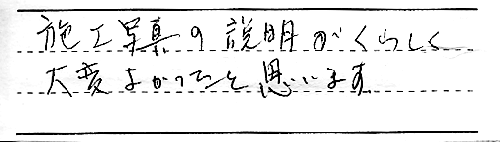 施工写真の説明がくわしく
大変よかったと思います